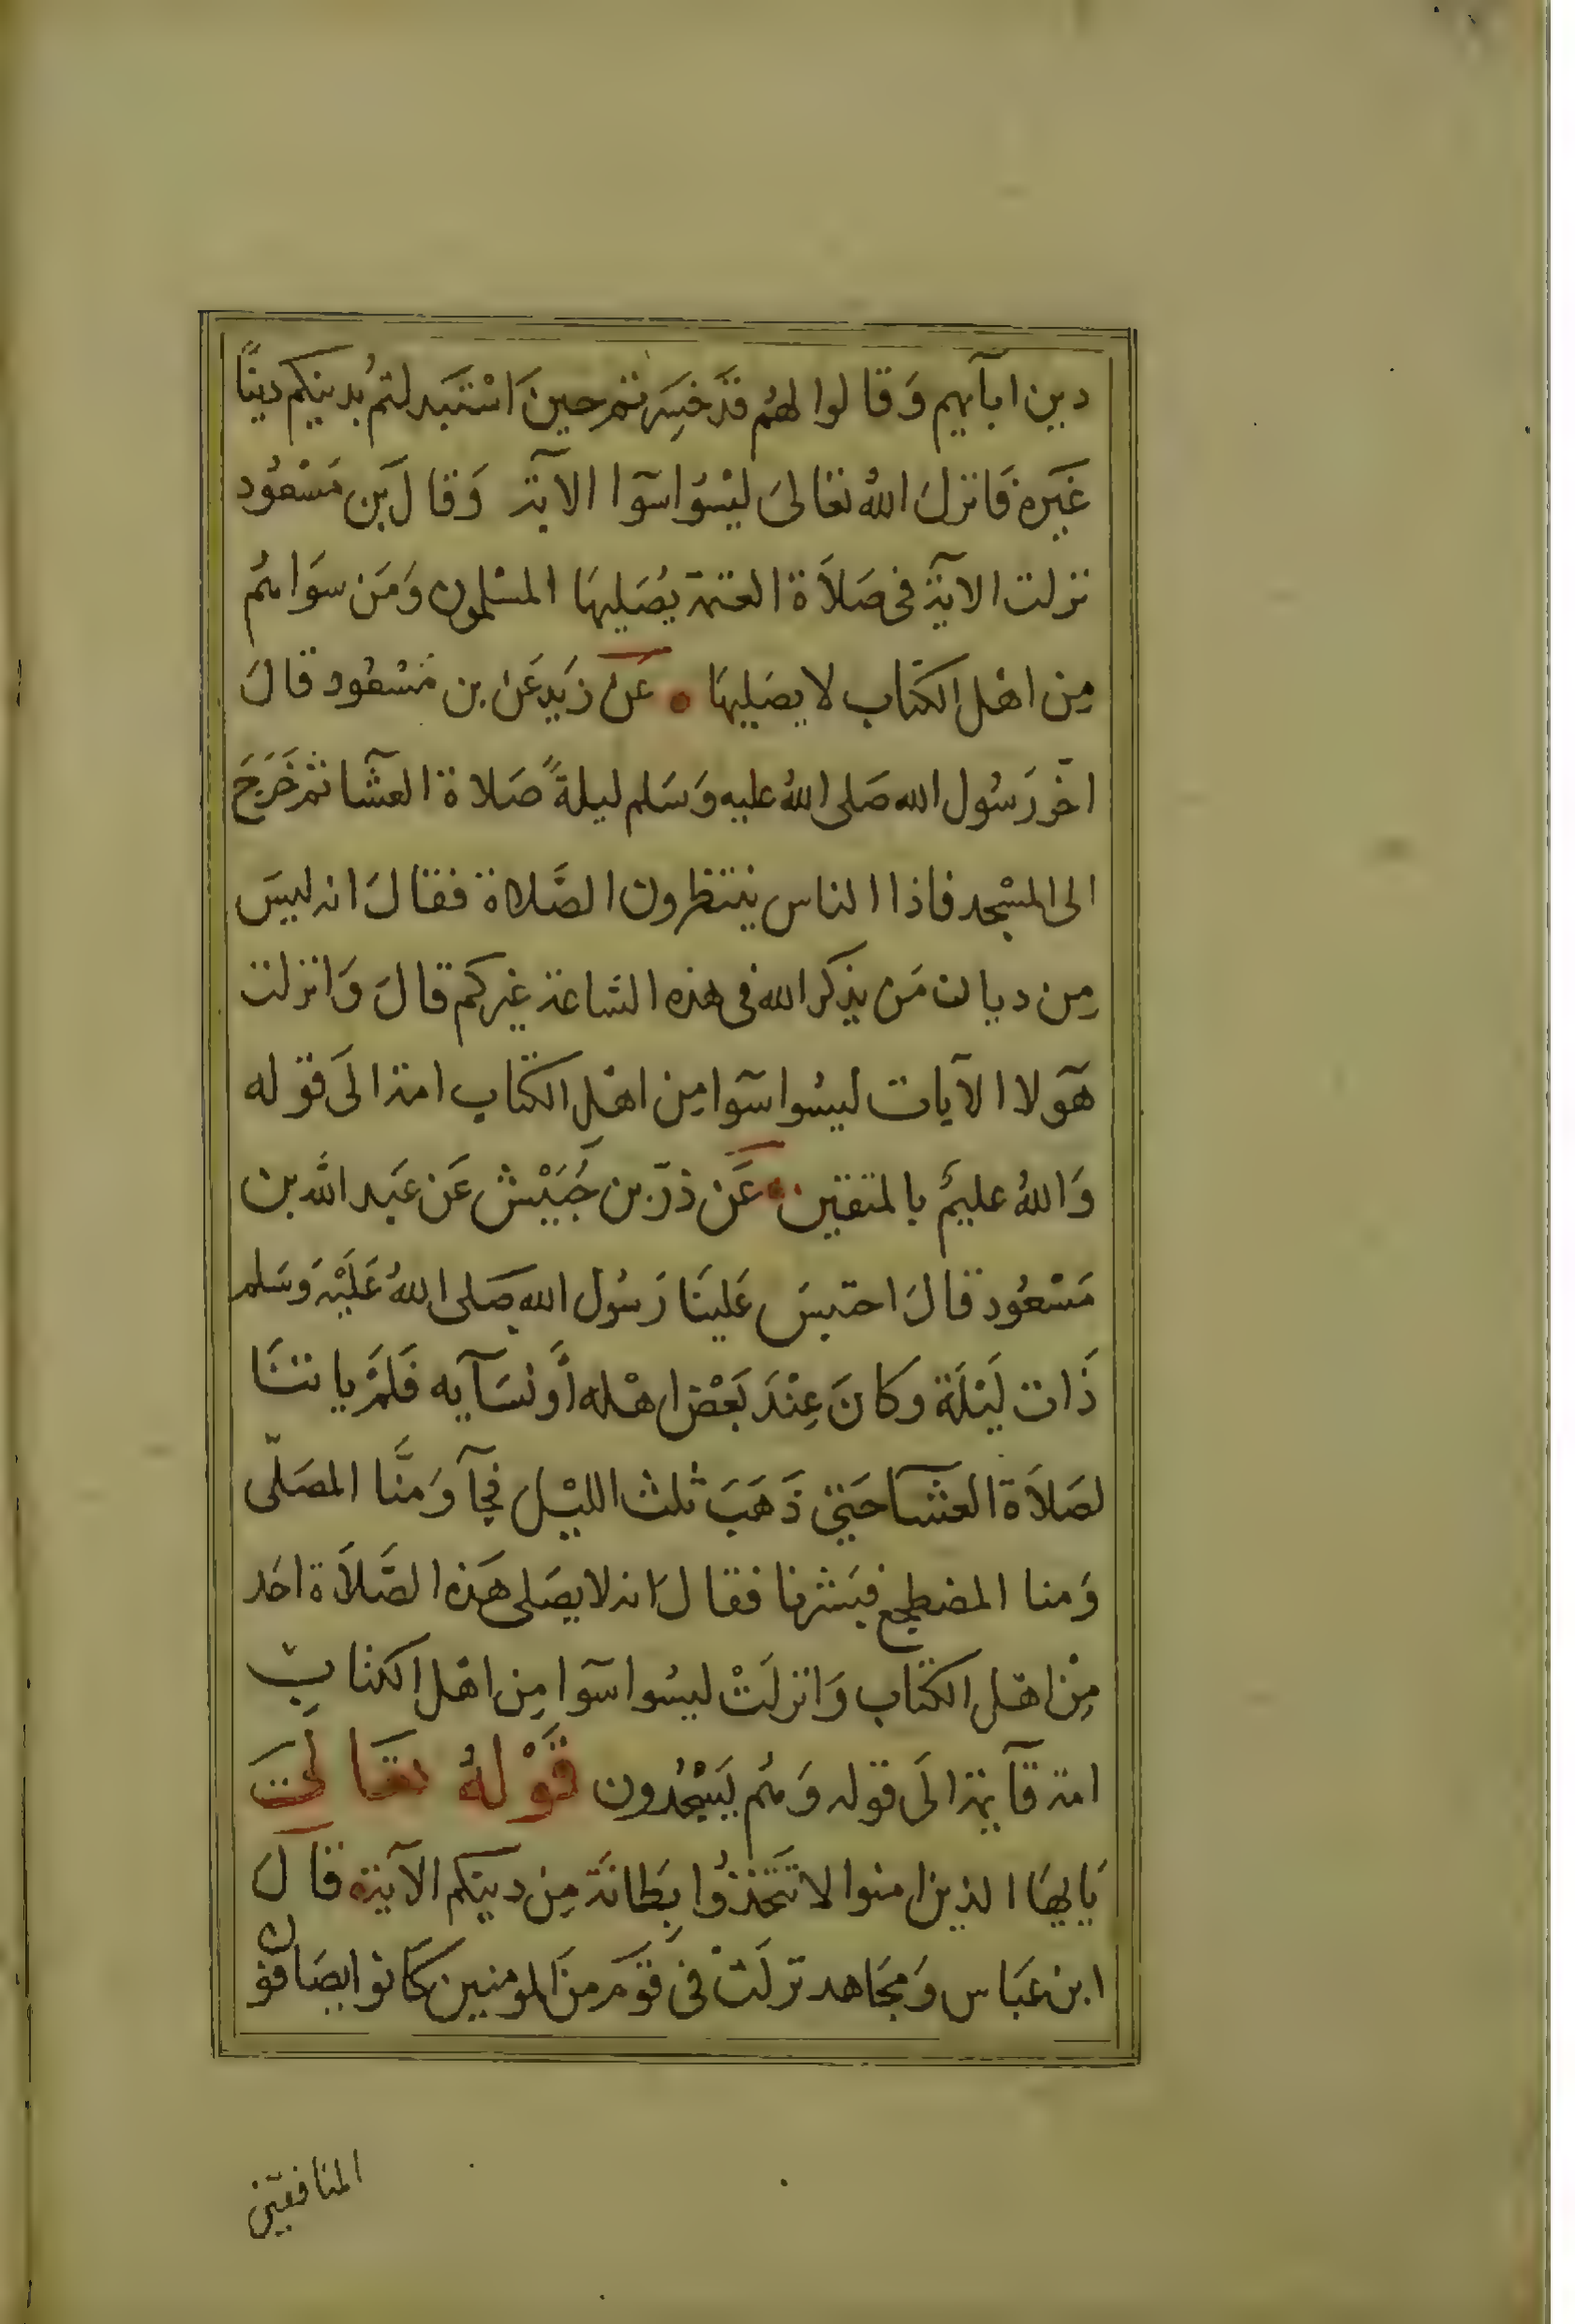 دين ابآيهم وَقالوا لهُم قدَ خسِرتم حينَ اسْتبَدلتم بُدينِكم دينًا
غَيره فَانزلَ اللهُ تعَالىَ ليْسُوا سَوآا الآية وَقالَ بن مَسْعُود
نزلت الايَة فى صَلاَة العتمة يُصَليهَا المسْلمون وَمَن سوَاهُم
مِن اهْل الكتاب لا يصَليهَا عَن زَيد عَن بن مَسْعُود قالَ
اخّر رَسُول الله صَلى اللهُ عليه وَسَلم ليلةً صَلاة العشآا ثم خَرَجَ
الى المسْجد فاذا الناس ينتظرون الصَّلاة فقالَ انه ليسَ
مِن ديان مَن يذكر الله فى هذه السَاعة غيركم قالَ وَانزلت
هَآولا الآيات ليسُوا سَوآا مِن اهْل الكتاب امة الَى قوله
وَاللهُ عليمُ بالمتقين عَن ذرّ بن حُبَيْش عَن عَبد الله بن
مَسْعُود قالَ احتبسَ عَلينَا رَسُول الله صَلى اللهُ عَليْهِ وَسَلم
ذَات ليْلَة وكانَ عِنْدَ بَعْض اهْله أو نسَآيه فَلمَ ياتنَا
لصَلاَة العشآا حَتى ذَهَبَ ثلث الليْل فجآ وَمنَّا المصَلّى
وَمنا المضطجع فبَشرنا فقالَ انه لا يصَلى هَذه الصَّلاَة احَد
مِنْ اهْل الكتاب وَانزلَتْ ليسُوا سَوآا مِن اهْل الكتابِ
امة قآيمة الَى قوله وَهُم يَسْجُدُون قَوْلهُ تعَالىَ
يَايهَا الذين امنوا لا تَتَّخذُوا بِطانَة مِن دينكم الآية قالَ
ابن عَباس وَمجَاهد نزلَتْ فى قَوم منَ المومنين كَانوا يصَافون
المنافقين